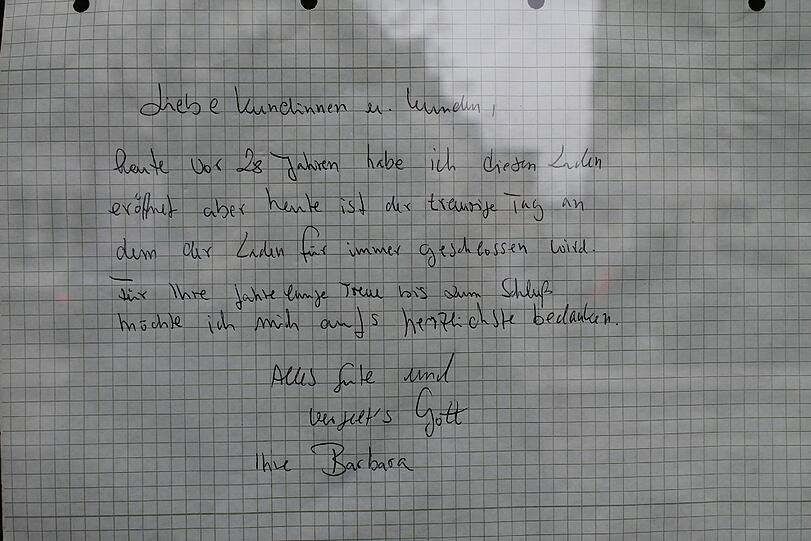 Liebe Kundinnen u. Kunden,
heute vor 28 Jahren habe ich diesen Laden
eröffnet aber heute ist der traurige Tag an
dem der Laden für immer geschlossen wird.
Für Ihre jahrelange Treue bis zum Schluß
möchte ich mich aufs herzlichste bedanken.
Alles Gute und
vergelt's Gott
Ihre Barbara